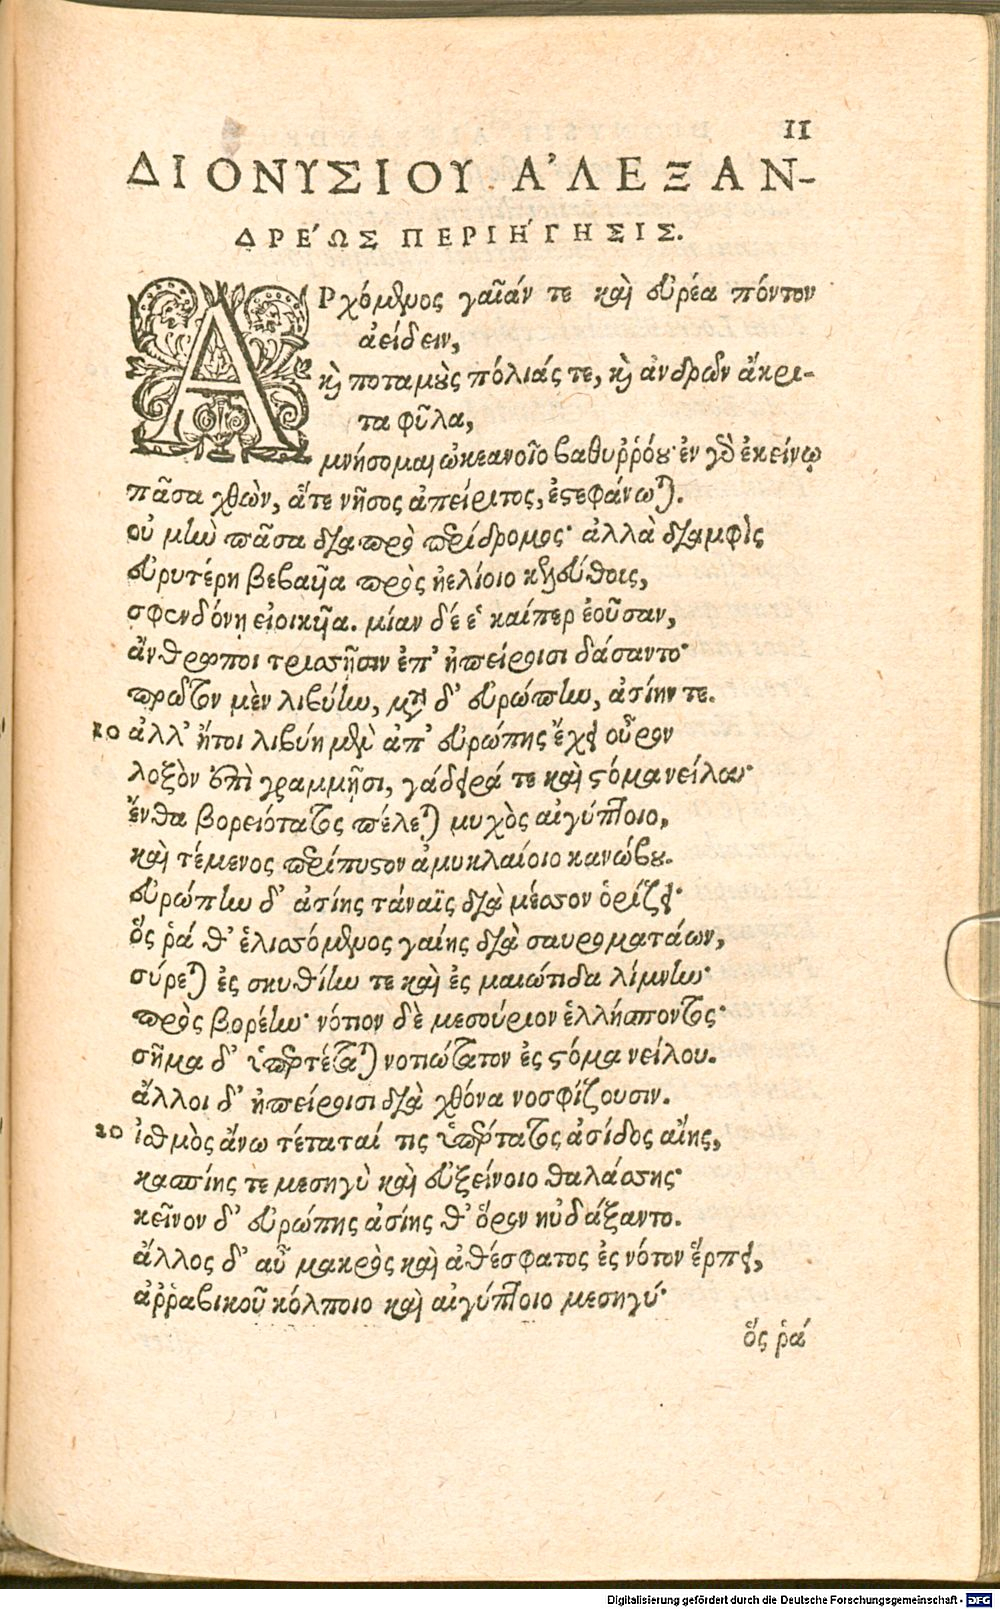 11
ΔΙΟΝΥΣΙΟΥ Α᾽ΛΕΞΑΝ-
ΔΡΕ´ΩΣ ΠΕΡΙΗ´ΓΗΣΙΣ.
ΑΡχόμενος γαῖάν τε καὶ εὐρέα πόντον
ἀείδειν,
κὶ ποταμοὺς πόλιάς τε, κὶ ἀνδρῶν ἄκρι-
τα φῦλα,
μνήσομαι ὠκεανοῖο βαθυῤῥόου· ἐν γὰρ ἐκείνῳ
πᾶσα χθὼν, ἅτε νῆσος ἀπείριτος, ἐστεφάνωται.
οὐ μὴν πᾶσα διαπρὸ περίδρομος· ἀλλὰ διαμφὶς
εὐρυτέρη βεβαυῖα πρὸς ἠελίοιο κελεύθοις,
σφενδόνῃ εἰοικυῖα. μίαν δέ ἑ καίπερ ἐοῦσαν,
ἄνθρωποι τρισσῇσιν ἐπ᾽ ἠπείροισι δάσαντο·
πρῶτον μὲν λιβύην, μετὰ δ᾽ εὐρώπην, ἀσίην τε.
10 ἀλλ᾽ ἤτοι λιβύη μὲν ἀπ᾽ εὐρώπης ἔχει οὖρον
λοξὸν ἐπὶ γραμμῇσι, γάδειρά τε καὶ στόμα νείλου·
ἔνθα βορειότατος πέλεται μυχὸς αἰγύπτοιο,
καὶ τέμενος περίπυστον ἀμυκλαίοιο κανώβου.
εὐρώπην δ᾽ ἀσίης τάναϊς διὰ μέσσον ὁρίζει·
ὅς ῥά θ᾽ ἑλισσόμενος γαίης διὰ σαυροματάων,
σύρεται ἐς σκυθίην τε καὶ ἐς μαιώτιδα λίμνην·
πρὸς βορέην· νότιον δὲ μεσούριον ἑλλήσποντος·
σῆμα δ᾽ ὑπερτέταται νοτιώτατον ἐς στόμα νείλου.
ἄλλοι δ᾽ ἠπείροισι διὰ χθόνα νοσφίζουσιν.
20 ἰσθμὸς ἄνω τέταταί τις ὑπέρτατος ἀσίδος αἴης,
κασπίης τε μεσηγὺ καὶ εὐξείνοιο θαλάσσης·
κεῖνον δ᾽ εὐρώπης ἀσίης θ᾽ ὅρον ηὐδάξαντο.
ἄλλος δ᾽ αὖ μακρὸς καὶ ἀθέσφατος ἐς νότον ἕρπει,
ἀῤῥαβικοῦ κόλποιο καὶ αἰγύπτοιο μεσηγύ·
ὅς ῥά
Digitalisierung gefördert durch die Deutsche Forschungsgemeinschaft - DFG